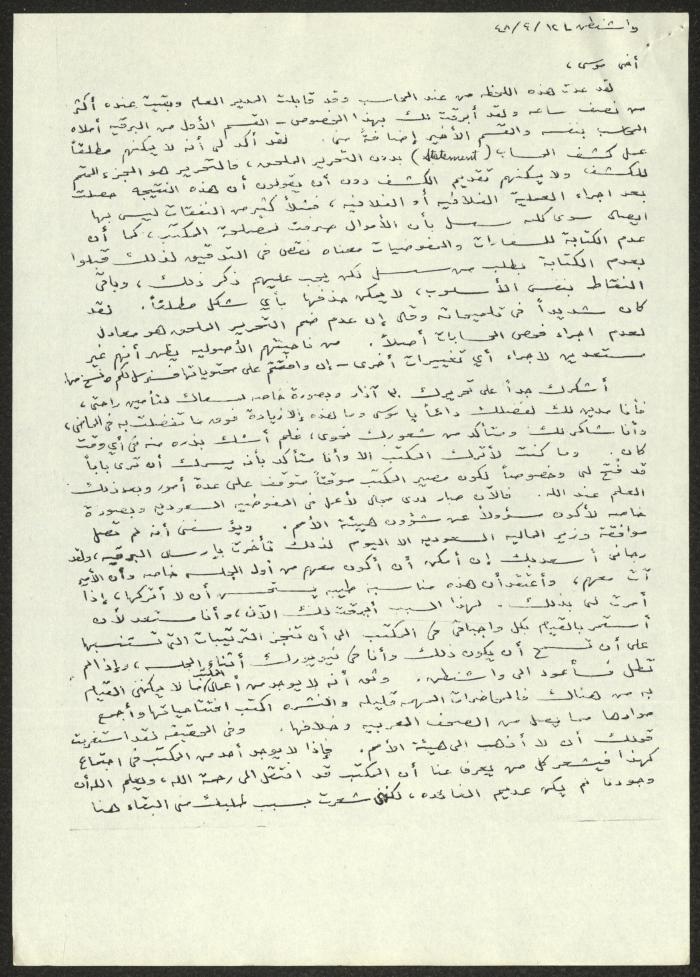 واشنطن في ١٢/٤/٤٨
أخي موسى،
لقد عدت هذه اللحظة من عند المحاسب وقد قابلت المدير العام وبقيت عنده أكثر
من نصف ساعه ولقد أبرقت لك بهذا الخصوص – القسم الأول من البرقيه أملاه
المحاسب بنفسه والقسم الأخير إضافة مني. لقد أكد لي أنه لا يمكنهم مطلقاً
عمل كشف الحساب (statement) بدون التحرير الملحق، فالتحرير هو الجزء المتمم
للكشف ولا يمكنهم تقديم الكشف دون أن يقولون أن هذه النتيجة حصلت
بعد اجراء العملية الفلانيه أو الفلانيه، فمثلاً كثير من النفقات ليس بها
ايصال سوى كلمه بأن الأموال صرفت لمصلحة المكتب، كما أن
عدم الكتابة للسفارات والمفوضيات معناه نقص في التدقيق لذلك قبلوا
بعدم الكتابة بطلب من لكن يجب عليهم ذكر ذلك، وباقي
النقاط بنفس الأسلوب، لا يمكن حذفها بأي شكل مطلقاً. لقد
كان شديداً في تلميحاته وقال إن عدم ضم التحرير الملحق هو معادل
لعدم اجراء فحص الحسابات أصلاً. من ناحيتهم الأصوليه يظهر أنهم غير
مستعدين لاجراء أي تغييرات أخرى – إن وافقتم على محتوياتها فنرسل لكم نسخ منها
أشكرك جداً على تحريرك ٣٠ آذار وبصورة خاصه لمسعاك لتأمين راحتي،
فأنا مدين لك لفضلك دائماً يا موسى وما هذه إلا زيادة فوق ما تفضلت به في الماضي،
وأنا شاكر لك ومتأكد من شعورك نحوي، فلم أشك بذره منه في أي وقت
كان. وما كنت لأترك المكتب الا وأنا متأكد بأنه يسرك أن ترى باباً
قد فُتح لي وخصوصاً لكون مصير المكتب موقتاً متوقف على عدة أمور وبعد ذلك
العلم عند الله. فالآن صار لدي مجالي لأعمل في المفوضيه السعوديه وبصورة
خاصه لأكون مسؤولاً عن شؤون هيئة الأمم. ويؤسفني أنه لم تصل
موافقة وزير الماليه السعوديه الا اليوم لذلك تأخرت بإرسال البرقيه، ولقد
رجاني أسعد بك إن أمكن أن أكون معهم من أول الجلسه خاصه وأن الأمير
آت معهم، وأعتقد أن هذه مناسبة طيبه يستحسن أن لا أتركها، إذا
أمرت لي بذلك. لهذا السبب أبرقت لك الآن، وأنا مستعد لأن
أستمر بالقيام بكل واجباتي في المكتب الى أن تنجز الترتيبات التي تستنسبها
على أن تسمح أن يكون ذلك وأنا في نيويورك أثناء الجلسه، وإذا لم
تطل فسأعود الى واشنطن. وثق أنه لا يوجد من أعمال المكتب ما لا يمكنني القيام
به من هناك فالمحاضرات المهمه قليله والنشره اكتب افتتاحياتها وأجمع
موادها مما يصل من الصحف العربيه وخلافها. وفي الحقيقه لقد استغربت
قولك أن لا أذهب الى هيئة الأمم. فإذا لا يوجد أحد من المكتب في اجتماع
كهذا فيشعر كل من يعرف عنا أن المكتب قد انتقل الى رحمة الله، ويعلم الله أن
وجودنا لم يكن عديم الفائده، لكني شعرت بسبب لطلبك مني البقاء هنا